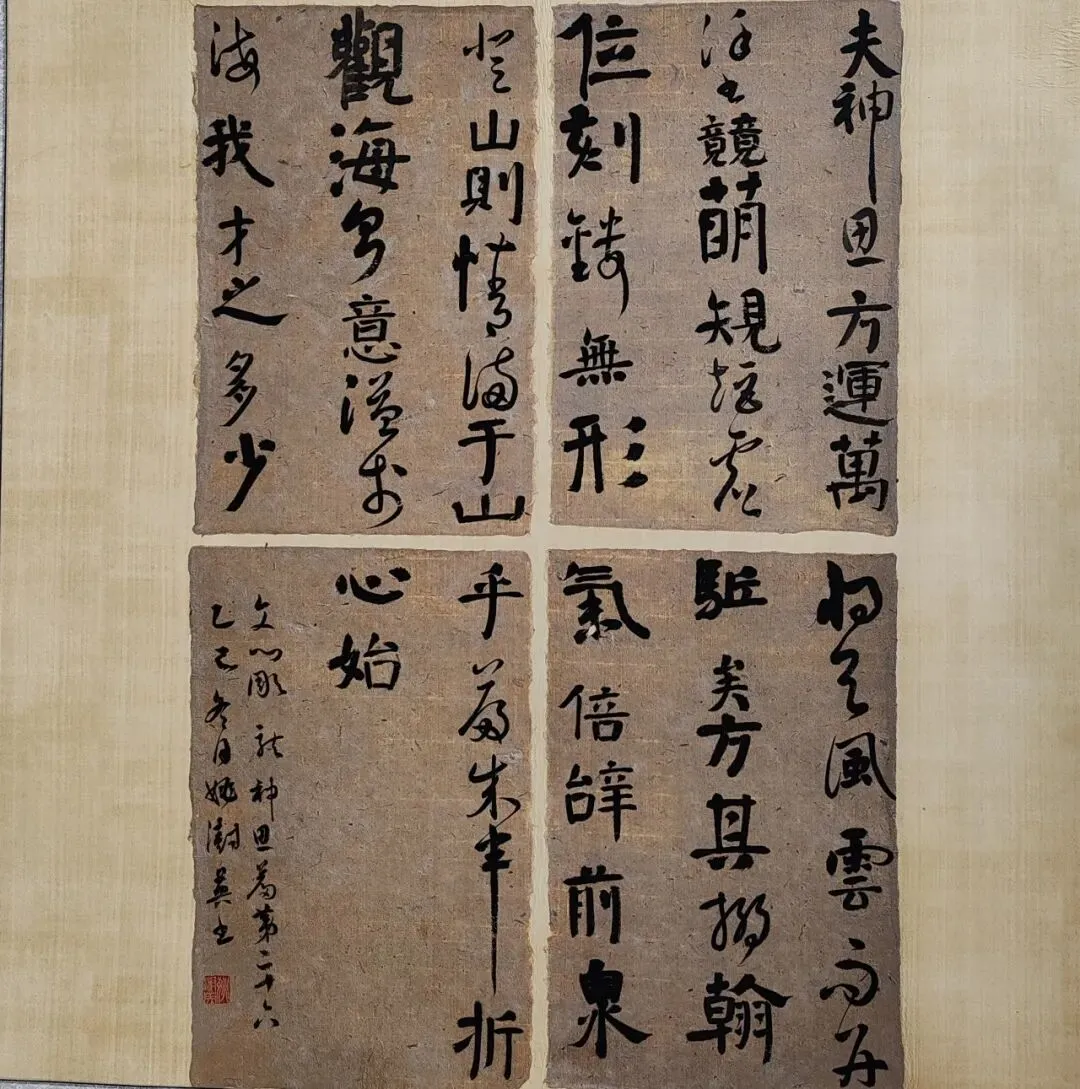 夫神思方運萬
塗競萌䂓矩虛
位刻鏤無形
登山則情滿于山
觀海則意溢於
海我才之多少
將與風雲而并
駈矣方其搦翰
氣倍辝前臮
乎篇成半折
心始
文心彫龍神思篇第二十六
乙巳冬日姚澍英书